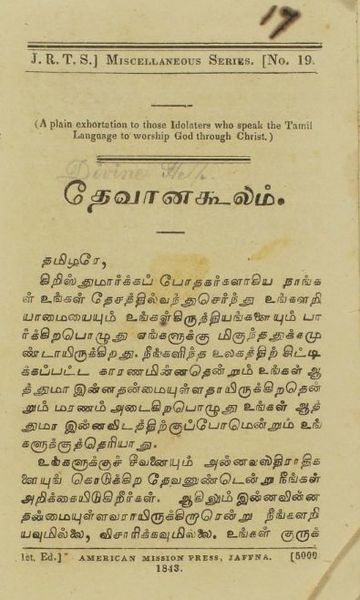 17
J. R. T. S.] MISCELLANEOUS SERIES. [No. 19.
(A plain exhortation to those Idolaters who speak the Tamil
Language to worship God through Christ.)
Divine Help
தேவானகூலம்.
தமிழரே,
கிறிஸ்துமார்க்கப் போதகர்களாகிய நாங்க
ள் உங்கள் தேசத்தில்வந்துசேர்ந்து உங்களறி
யாமையையும் உங்கள்கிருத்தியங்களையும் பா
ர்க்கிறபொழுது எங்களுக்கு மிகுந்ததுக்கமு
ண்டாயிருக்கிறது. நீங்களிந்த உலகத்திற் கிட்டி
க்கப்பட்ட காரணமின்னதென்றும் உங்கள் ஆ
த்துமா இன்னதன்மையுள்ளதாயிருக்கிறதென்
றும் மரணம் அடைகிறபொழுது உங்கள் ஆத்
துமா இன்னவிடத்திற்குப்போமென்றும் உங்
களுக்குத்தெரியாது.
உங்களுக்குச் சீவனையும் அன்னவஸ்திராதிக
ளையுங் கொடுக்கிற தேவனுண்டென்று நீங்கள்
அறிக்கையிடுகிறீர்கள். ஆகிலும் இன்னவின்ன
தன்மையுள்ளவராயிருக்கிறாரென்று நீங்களறி
யவுமில்லை, விசாரிக்கவுமில்லை. உங்கள் குருக்
1st. Ed.] AMERICAN MISSION PRESS, JAFFNA. [5000
1843.